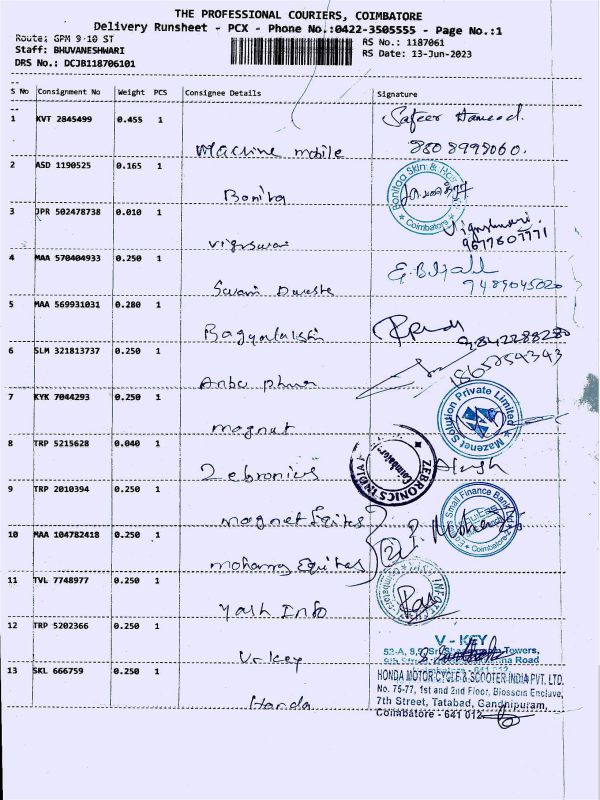 THE PROFESSIONAL COURIERS, COIMBATORE
Delivery Runsheet - PCX - Phone No.:0422-3505555 - Page No.:1
Route: GPM 9-10 ST
RS No.: 1187061
Staff: BHUVANESHWARI
RS Date: 13-Jun-2023
DRS No.: DCJB118706101
S No Consignment No Weight PCS Consignee Details Signature
1 KVT 2845499 0.455 1
Machine mobile
Safeer Hameed
8808999060.
2 ASD 1190525 0.165 1
Bonita
Coimbatore
3 JPR 502478738 0.010 1
Vignswar
9677607771
4 MAA 570404933 0.250 1
Swami
7489045020
5 MAA 569931031 0.280 1
Bagyalakshi
6 SLM 321813737 0.250 1
Anbu
7 KYK 7044293 0.250 1
magnet
Mazenet Solution Private Limited
8 TRP 5215628 0.040 1
Zebronics
ZEBRONICS INDIA
Coimbatore
9 TRP 2010394 0.250 1
magnet Equites
Small Finance Bank
Equitas
Coimbatore
10 MAA 104782418 0.250 1
Equitas
11 TVL 7748977 0.250 1
Yash Info
12 TRP 5202366 0.250 1
V-Key
V - KEY
52-A,
Towers,
Road
13 SKL 666759 0.250 1
Honda
HONDA MOTORCYCLE & SCOOTER INDIA PVT. LTD.
No. 75-77, 1st and 2nd Floor, Blossom Enclave,
7th Street, Tatabad, Gandhipuram,
Coimbatore - 641 012